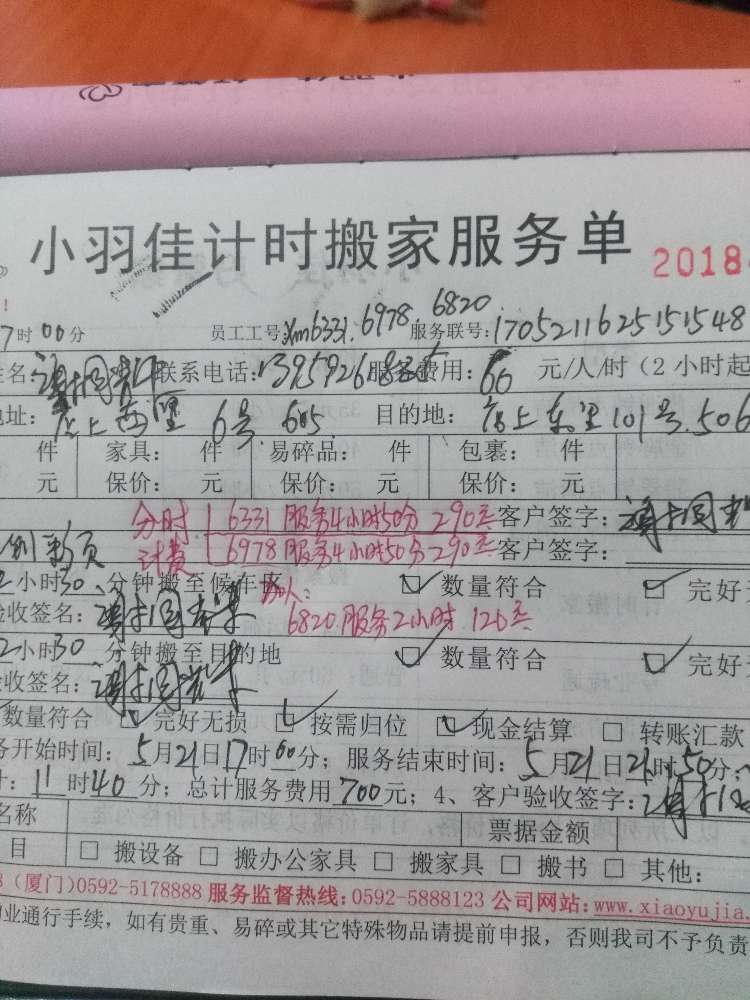 小羽佳计时搬家服务单
2018
7时00分 员工工号:Xm6331.6978.6820 服务联号:1705211625151548
姓名: 联系电话: 服务费用:60 元/人/时（2小时起
地址: 西里6号605 目的地: 东里101号.506
件 家具: 件 易碎品: 件 包裹: 件
元 保价: 元 保价: 元 保价: 元
分时 6331服务4小时50分 290元 客户签字:
计费 6978服务4小时50分 290元 客户签字:
2小时30分钟搬至候车区 加人: ☑ 数量符合 ☑ 完好
验收签名: 6820服务2小时.120元
2小时30分钟搬至目的地 ☑ 数量符合 ☑ 完好无
验收签名:
数量符合 ☑ 完好无损 ☑ 按需归位 ☑ 现金结算 □ 转账汇款
服务开始时间: 5月21日17时00分; 服务结束时间: 5月21日21时50分;
计: 11时40分; 总计服务费用700元; 4、客户验收签字:
名称 票据金额
目 □ 搬设备 □ 搬办公家具 □ 搬家具 □ 搬书 □ 其他:
（厦门）0592-5178888 服务监督热线:0592-5888123 公司网站:www.xiaoyujia.
物业通行手续, 如有贵重、易碎或其它特殊物品请提前申报, 否则我司不予负责